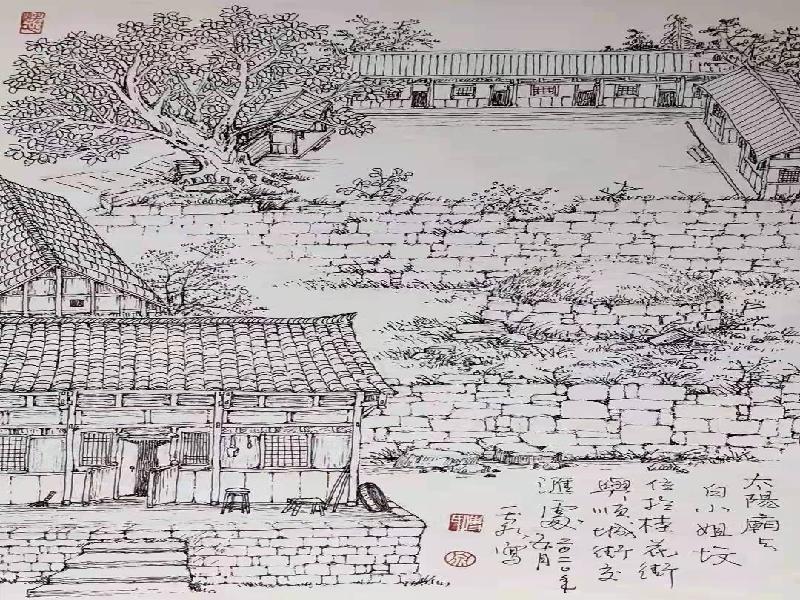 太陽廟与
白小姐坟
位於桂花街
與順城街交
滙處
二〇二〇年
五月
寫